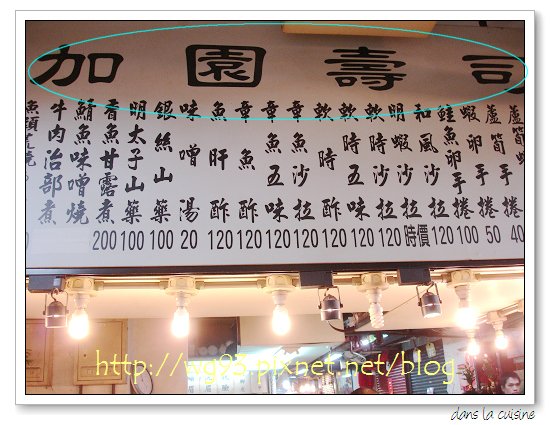 加園壽司
蘆筍手捲 40
蘆筍手捲 50
蝦卵手捲 100
鮭魚卵手捲 120
和風沙拉 時價
明蝦沙拉 120
軟時沙拉 120
軟時五味 120
軟時酢 120
章魚沙拉 120
章魚五味 120
章魚酢 120
魚肝酢 120
味噌湯 20
銀絲山藥 100
明太子山藥 100
香魚甘露煮 200
鯖魚味噌燒
牛肉治部煮
http://wg93.pixnet.net/blog
dans la cuisine